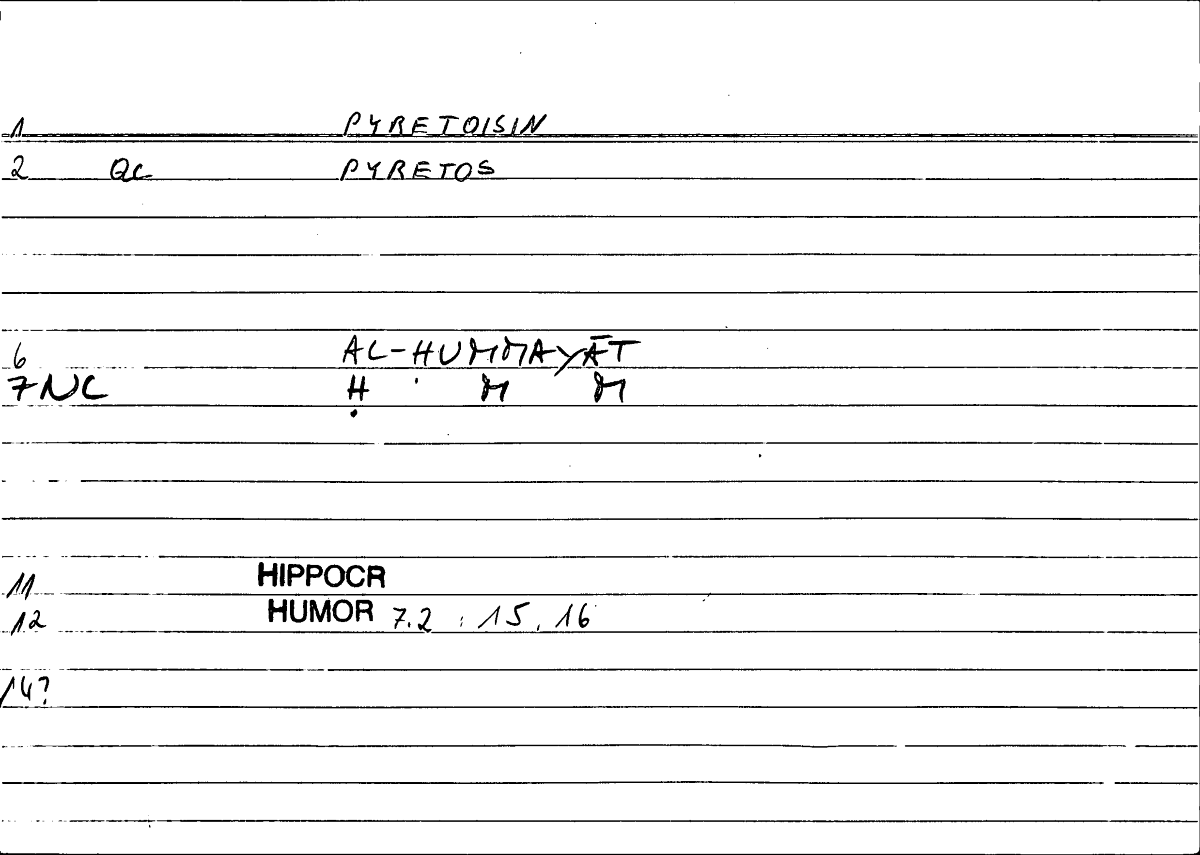 1 PYRETOISIN
2 QC PYRETOS
6 AL-ḤUMMAYĀT
7 NC Ḥ M M
11 HIPPOCR
12 HUMOR 7.2 : 15, 16
14?